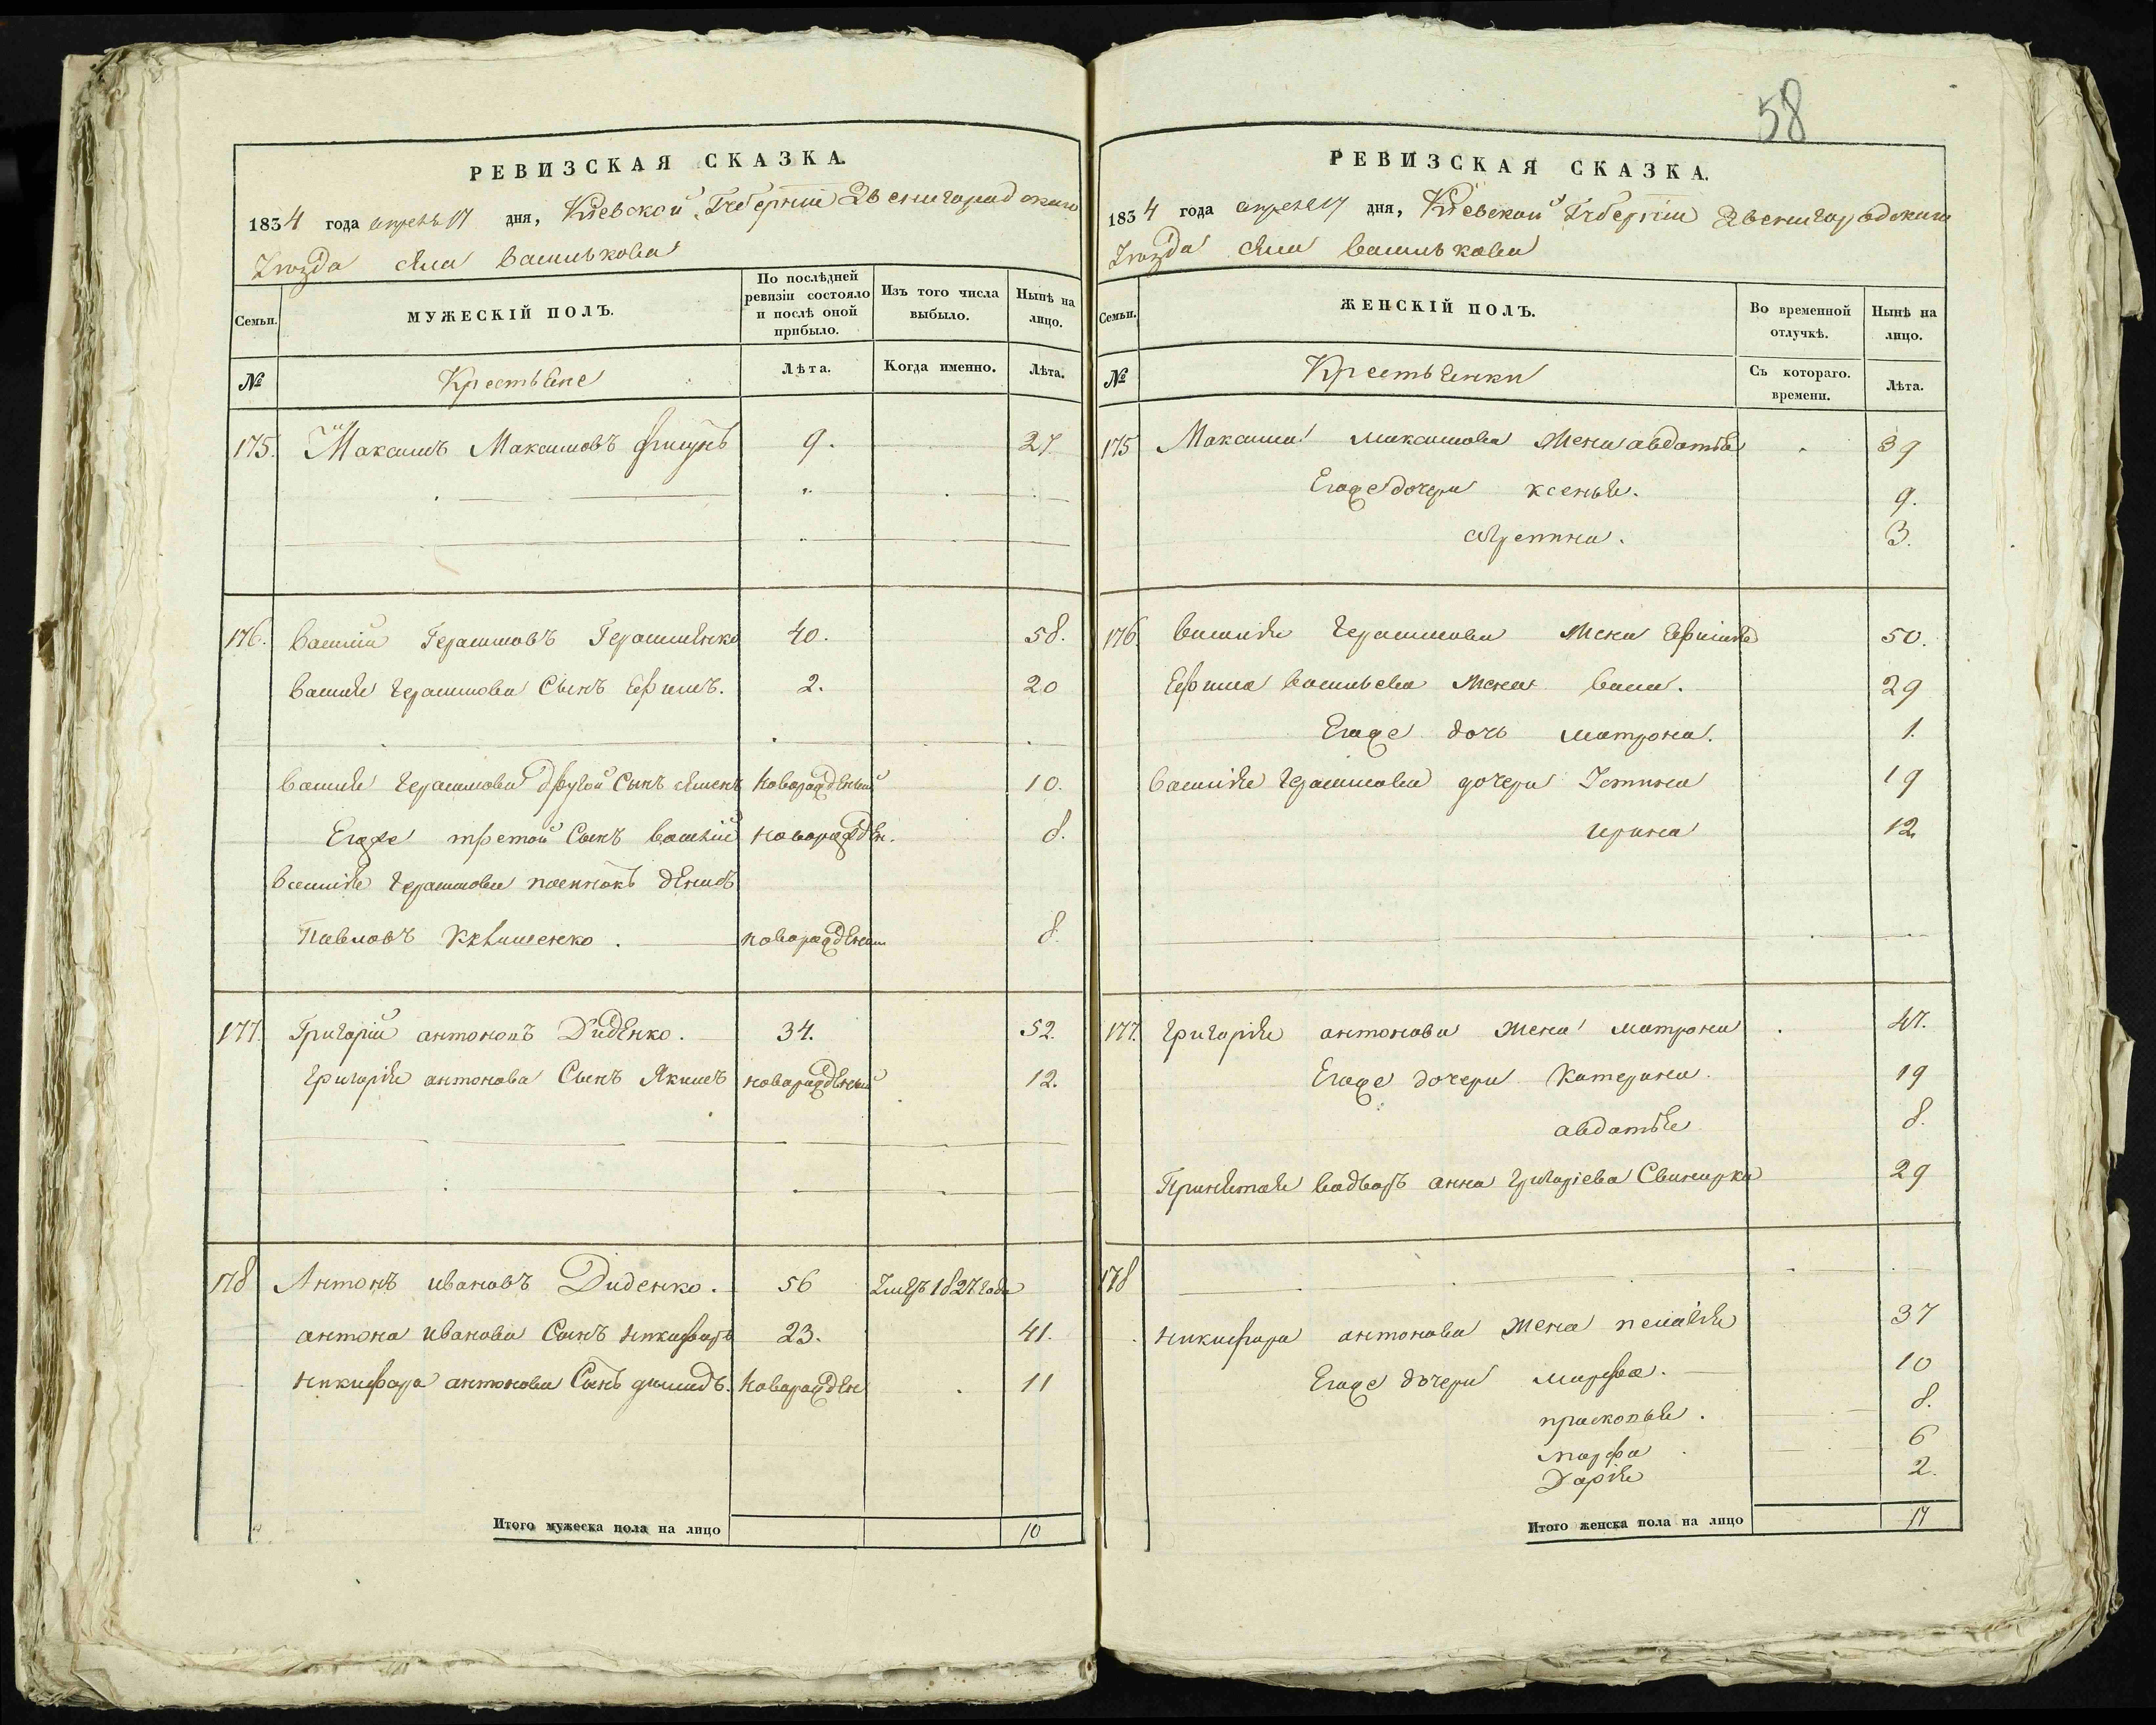 58
РЕВИЗСКАЯ СКАЗКА.
1834 года апреля 17 дня, Кіевской Губерніи Звенигородскаго
Уезда села Василькова
Семьи. МУЖЕСКІЙ ПОЛЪ. По послѣдней ревизіи состояло и послѣ оной прибыло. Изъ того числа выбыло. Нынѣ на лицо.
№ Крестьяне Лѣта. Когда именно. Лѣта.
175. Максимъ Максимовъ 9. 27.
176. Василій Герасимовъ Герасименко 40. 58.
Василія Герасимова Сынъ Ефимъ. 2. 20
Василія Герасимова другой Сынъ новорожденый 10.
Егоже третой Сынъ Василій новорожден. 8.
Василія Герасимова Денисъ
Павловъ новорожденый 8.
177. Григорій антоновъ Диденко. 34. 52.
Григорія антонова Сынъ Якимъ новорожденый 12.
178 Антонъ ивановъ Диденко. 56 Умеръ 1827 года
антона иванова Сынъ никифоръ 23. 41.
никифора антонова Сынъ новорожден 11
Итого мужеска пола на лицо 10
РЕВИЗСКАЯ СКАЗКА.
1834 года апреля 17 дня, Кіевской Губерніи Звенигородскаго
Уезда села Василькова
Семьи. ЖЕНСКІЙ ПОЛЪ. Во временной отлучкѣ. Нынѣ на лицо.
№ Крестьянки Съ котораго. времени. Лѣта.
175 Максима максимова жена авдотія 39
Егоже дочери ксенья. 9.
3.
176. Василія Герасимова жена 50.
Ефима васильева жена васса. 29
Егоже дочь матрона. 1.
Василія Герасимова дочери Устина 19
ирина 12
177. Григорія антонова жена матрона 47.
Егоже дочери Катерина. 19
авдотія 8.
Принятая анна григоріева 29
178
никифора антонова жена пелагія 37
Егоже дочери марфа. 10
прископья. 8.
марфа 6
Дарія 2.
Итого женска пола на лицо 17